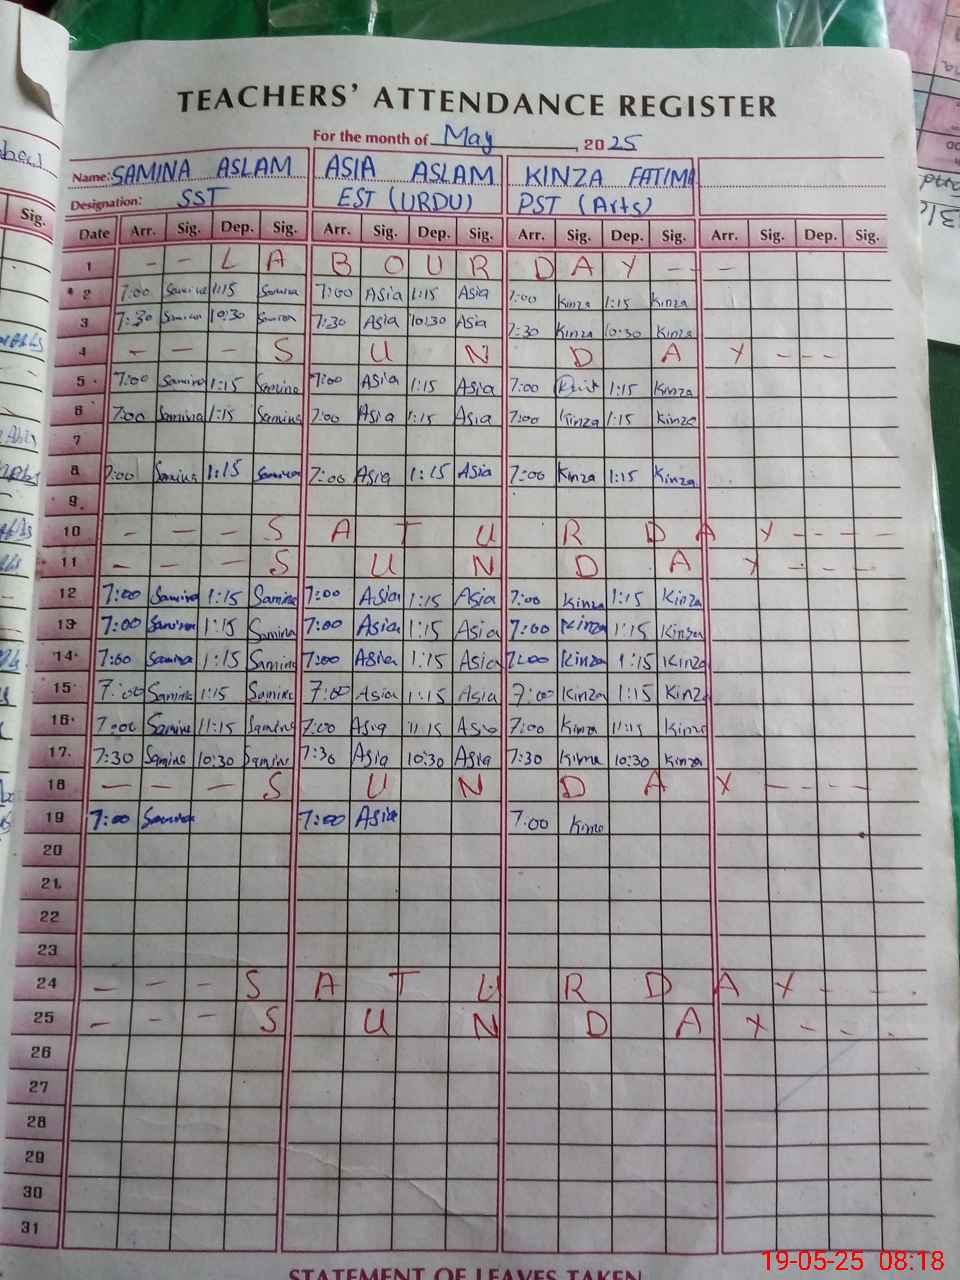 TEACHERS' ATTENDANCE REGISTER
For the month of May, 2025
Name: SAMINA ASLAM ASIA ASLAM KINZA FATIMA
Designation: SST EST (URDU) PST (Arts)
Sig.
Date Arr. Sig. Dep. Sig. Arr. Sig. Dep. Sig. Arr. Sig. Dep. Sig. Arr. Sig. Dep. Sig.
1 - - L A B O U R D A Y - - -
2 7:00 Samina 1:15 Samina 7:00 Asia 1:15 Asia 7:00 Kinza 1:15 Kinza
3 7:30 Samina 10:30 Samina 7:30 Asia 10:30 Asia 7:30 Kinza 10:30 Kinza
4 - - - S U N D A Y - - -
5 7:00 Samina 1:15 Samina 7:00 Asia 1:15 Asia 7:00 1:15 Kinza
6 7:00 Samina 1:15 Samina 7:00 Asia 1:15 Asia 7:00 Kinza 1:15 Kinza
7
8 7:00 Samina 1:15 Samina 7:00 Asia 1:15 Asia 7:00 Kinza 1:15 Kinza
9
10 - - - S A T U R D A Y - - - -
11 - - - S U N D A Y - - -
12 7:00 Samina 1:15 Samina 7:00 Asia 1:15 Asia 7:00 Kinza 1:15 Kinza
13 7:00 Samina 1:15 Samina 7:00 Asia 1:15 Asia 7:00 Kinza 1:15 Kinza
14 7:00 Samina 1:15 Samina 7:00 Asia 1:15 Asia 7:00 Kinza 1:15 Kinza
15 7:00 Samina 1:15 Samina 7:00 Asia 1:15 Asia 7:00 Kinza 1:15 Kinza
16 7:00 Samina 11:15 Samina 7:00 Asia 11:15 Asia 7:00 Kinza 11:15 Kinza
17 7:30 Samina 10:30 Samina 7:30 Asia 10:30 Asia 7:30 Kinza 10:30 Kinza
18 - - - S U N D A Y - - - -
19 7:00 Samina 7:00 Asia 7:00 Kinza
20
21
22
23
24 - - - S A T U R D A Y - - -
25 - - - S U N D A Y - - -
26
27
28
29
30
31
STATEMENT OF LEAVES TAKEN
19-05-25 08:18